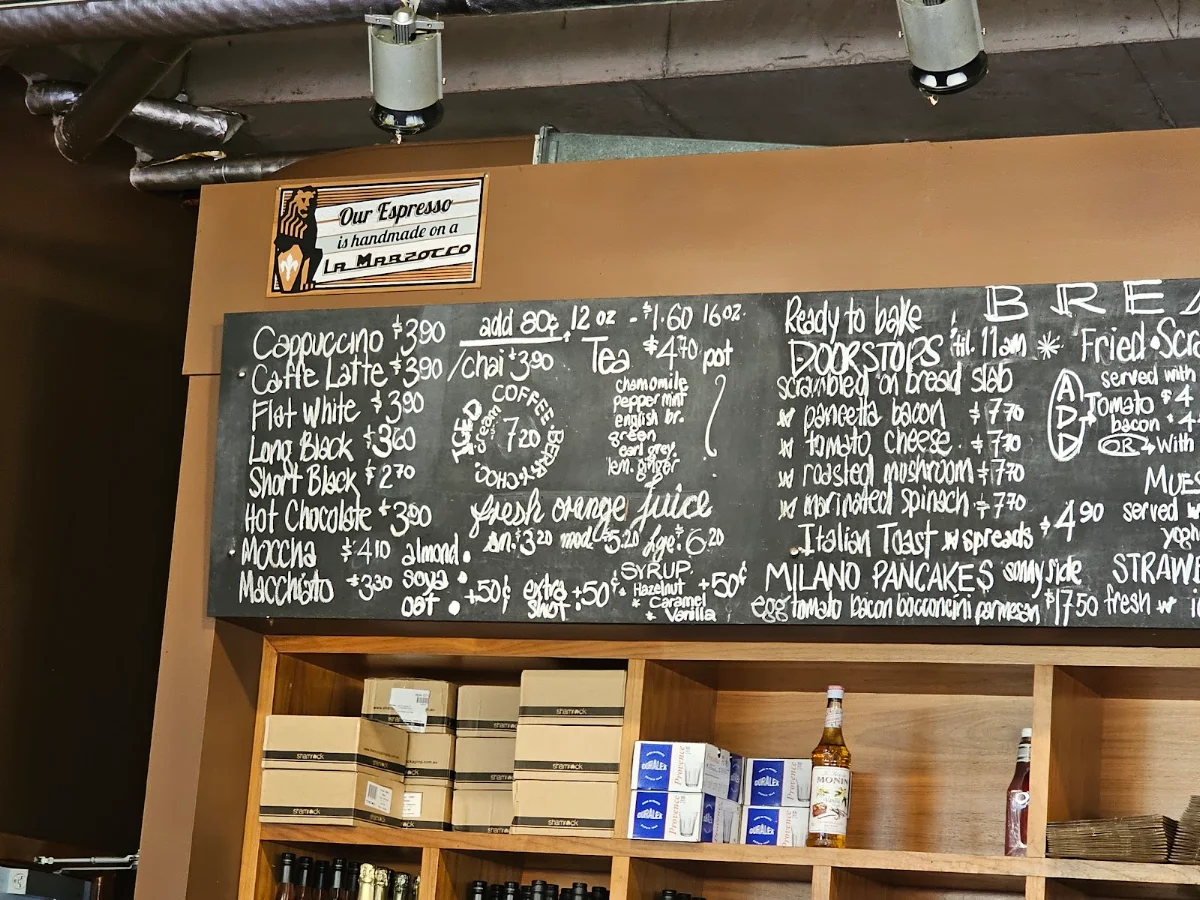 Our Espresso
is handmade on a
La Marzocco
Cappuccino $3.90
Caffe Latte $3.90
Flat White $3.90
Long Black $3.60
Short Black $2.70
Hot Chocolate $3.90
Moccha $4.10
Macchiato $3.30
add 80¢ 12 oz - $1.60 16oz.
/chai $3.90
Tea $4.70 pot
chamomile
peppermint
english br.
green
earl grey.
lem. ginger
ICED COFFEE·BERRY·CHOC
cream
7.20
fresh orange juice
sm. $3.20 med. $5.20 lge. $6.20
almond.
soya
oat. +50¢
extra shot. +50¢
SYRUP. +50¢
Hazelnut
Caramel
Vanilla
Ready to bake
DOORSTOPS 'til. 11am
scrambled on bread slab
w pancetta bacon $7.70
w tomato cheese. $7.70
w roasted mushroom $7.70
w marinated spinach $7.70
Italian Toast w spreads $4.90
MILANO PANCAKES sonny side
egg tomato bacon bocconcini parmesan $17.50
BREA
* Fried·Scra
served with
ADD
Tomato $4
bacon $4
OR with
MUES
served w
yogh
STRAWB
fresh w
shamrock
shamrock
shamrock
shamrock
shamrock
shamrock
DURALEX
Provence
DURALEX
Provence
DURALEX
Provence
DURALEX
Provence
MONIN